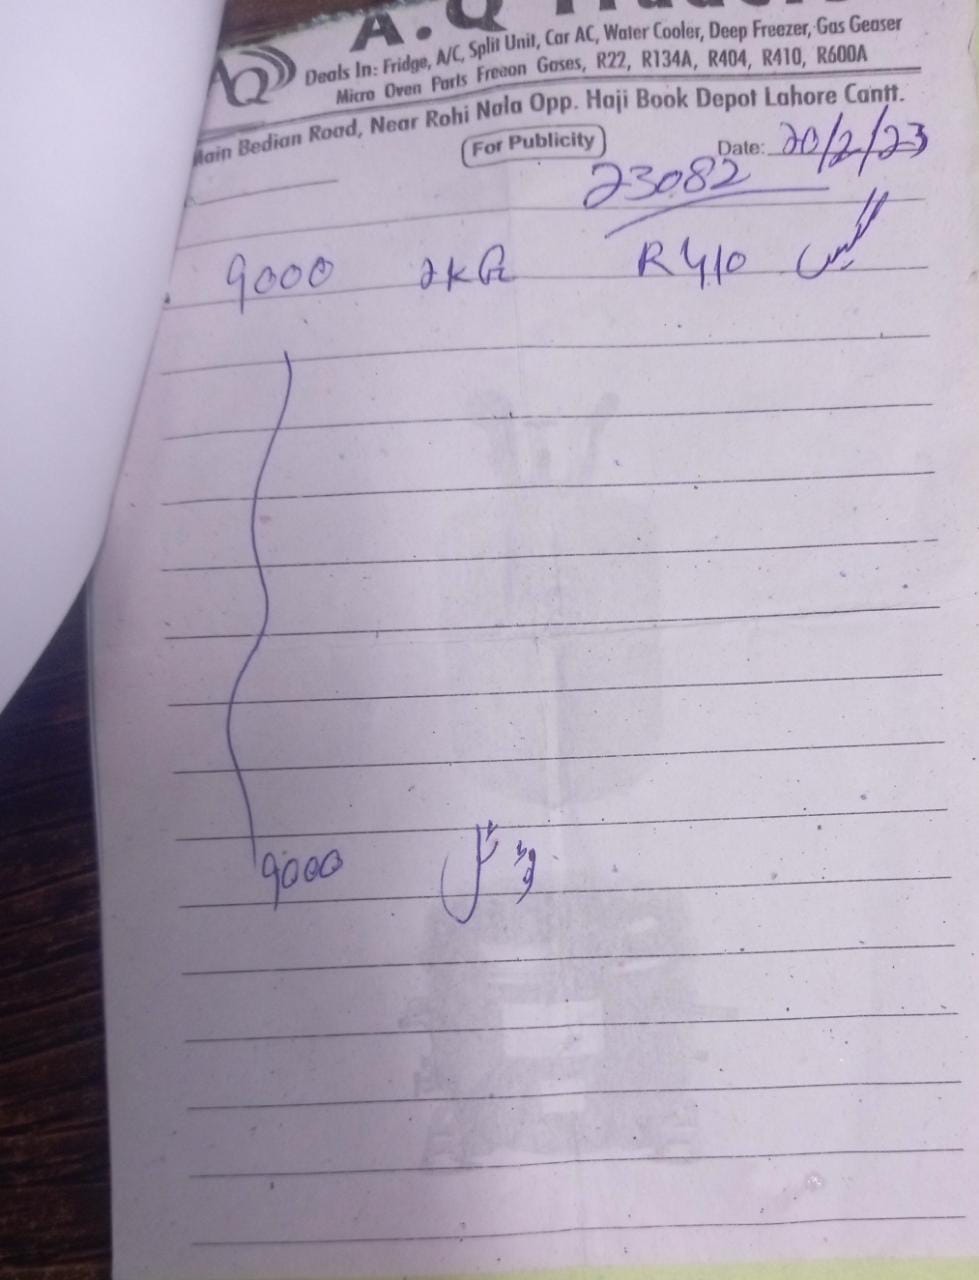 A.Q Traders
AQ
Deals In: Fridge, A/C, Split Unit, Car AC, Water Cooler, Deep Freezer, Gas Geaser
Micro Oven Parts Freeon Gases, R22, R134A, R404, R410, R600A
Main Bedian Road, Near Rohi Nala Opp. Haji Book Depot Lahore Cantt.
For Publicity
Date: 20/2/23
23082
9000 2KG R410 گیس
9000